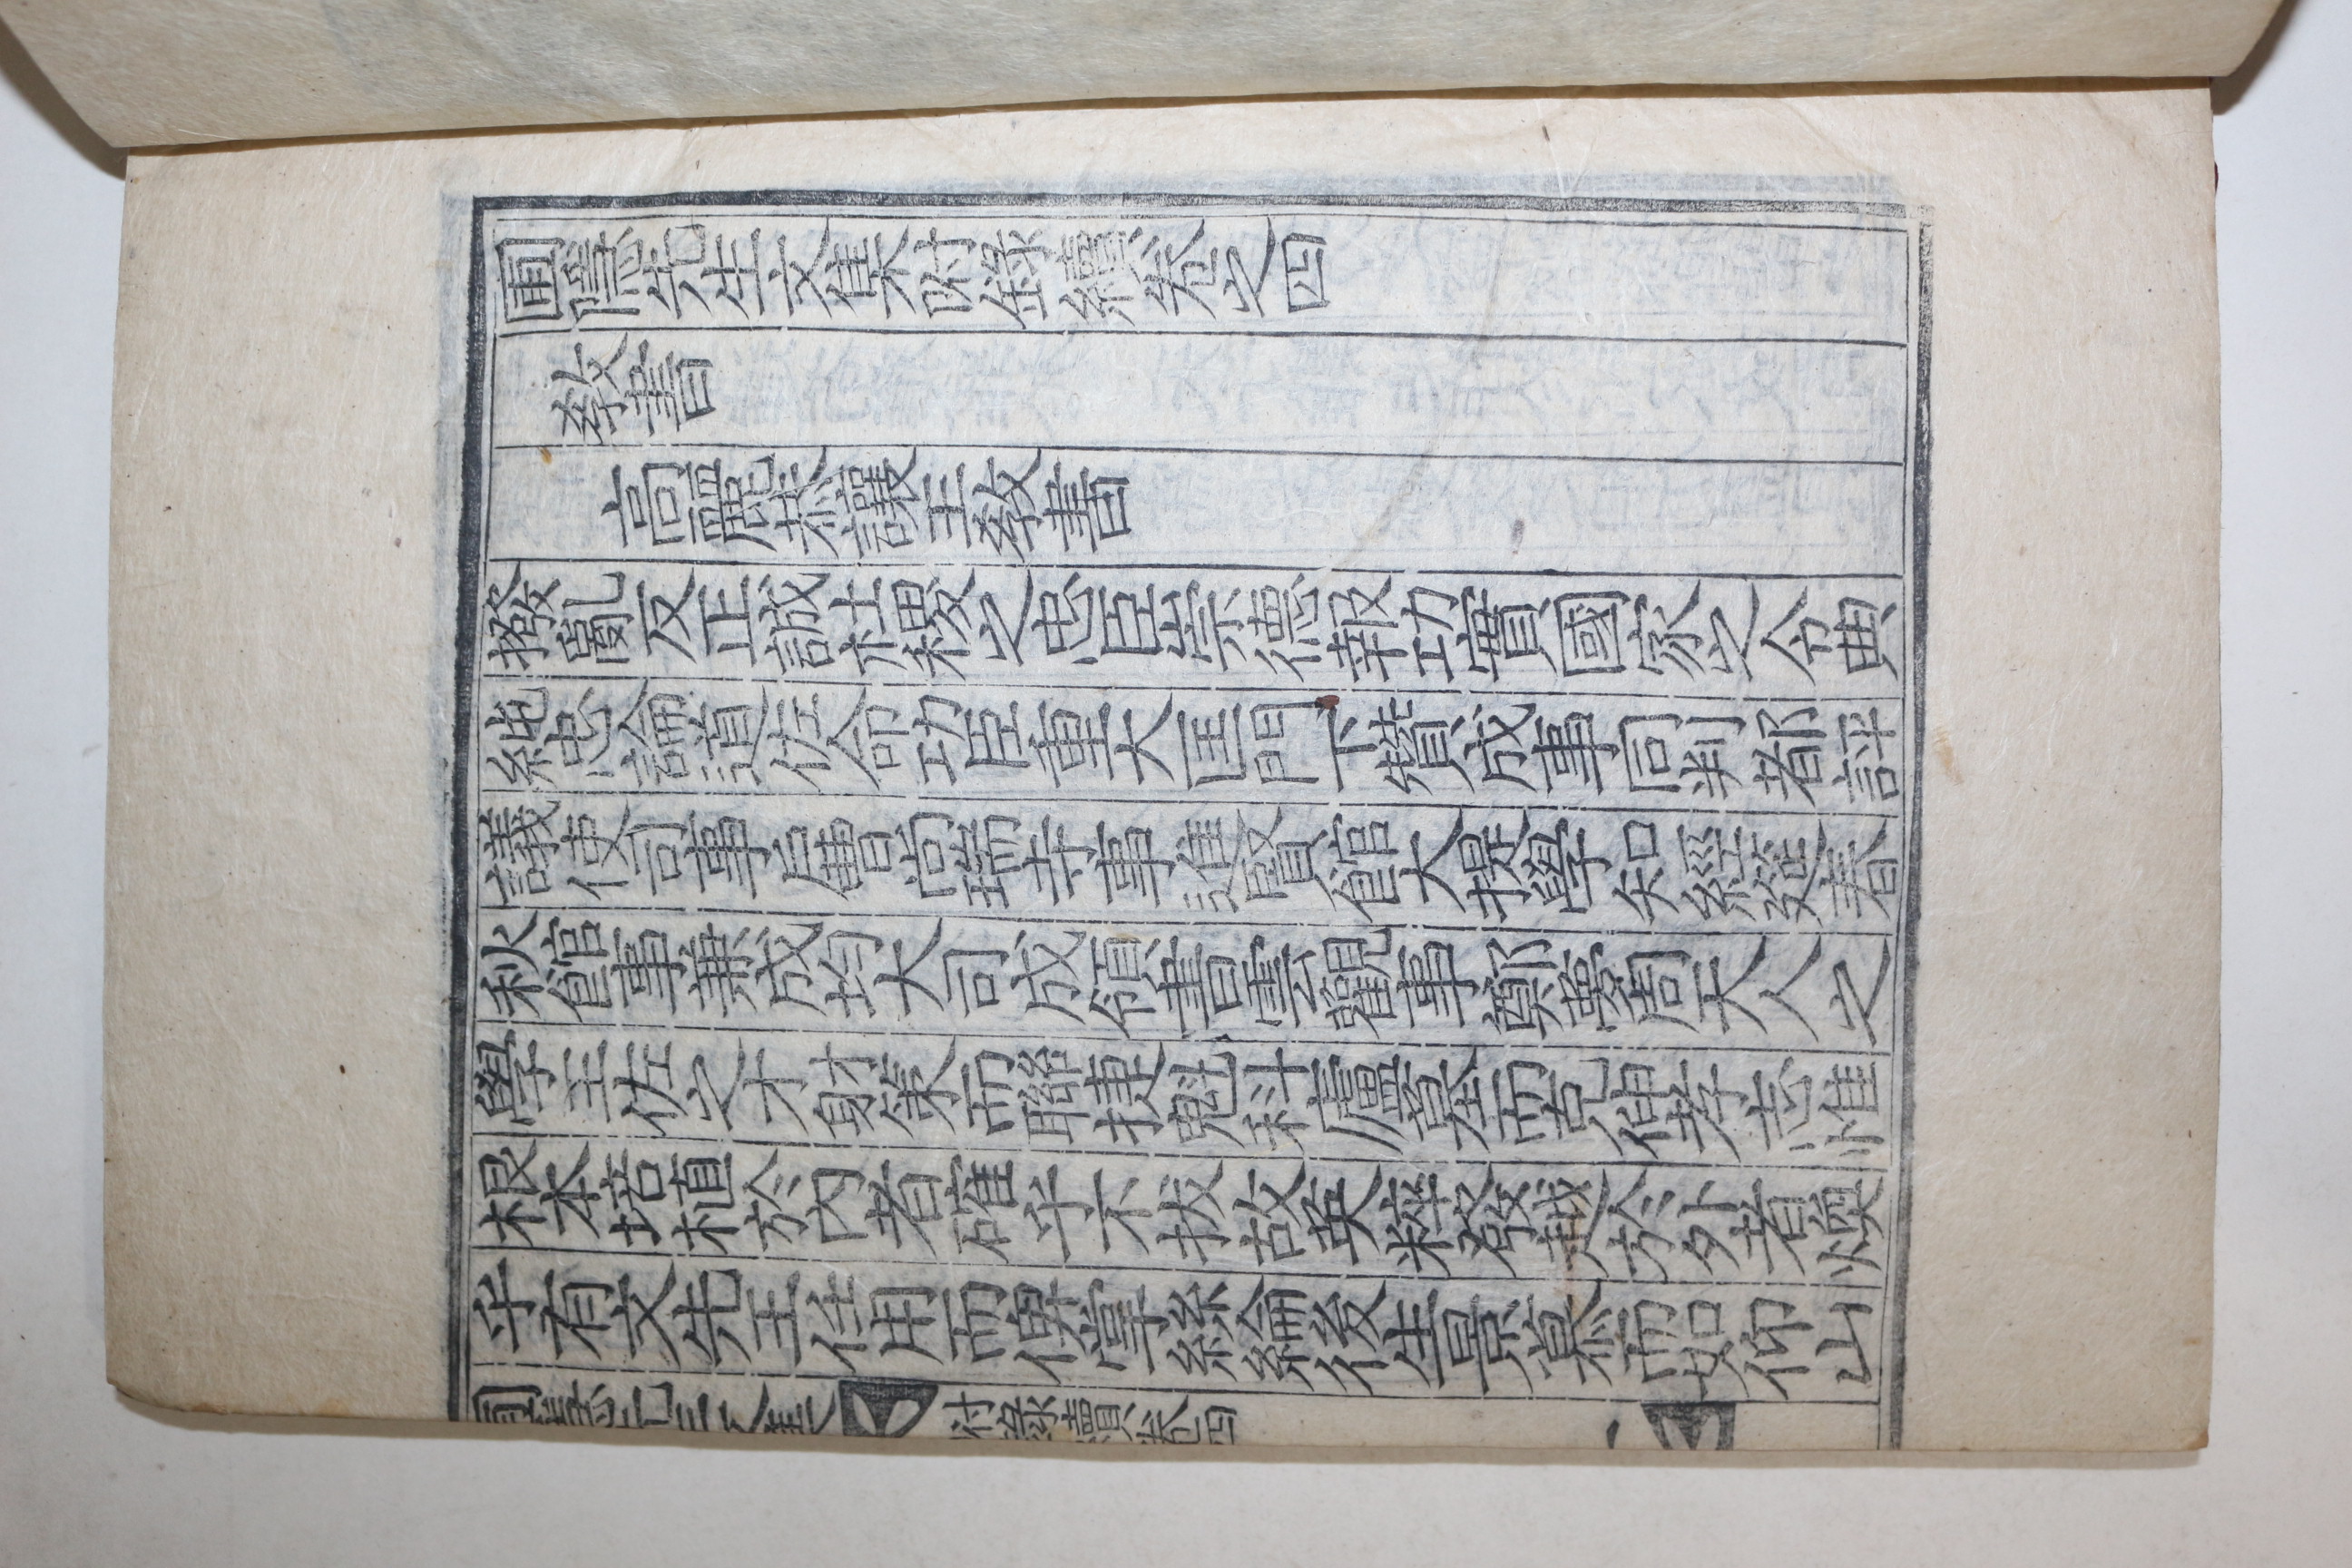 圃隱先生文集附錄續卷之四
敎書
高麗恭讓王敎書
撥亂反正誠社稷之忠臣崇德報功實國家之令典
純忠論道佐命功臣重大匡門下贊成事同判都評
議使司事戶曹尙瑞寺事進賢館大提學知經筵春
秋館事兼成均大司成領書雲觀事鄭夢周天人之
學王佐之才射策而聯捷魁科廬墓而克伸孝志惟
根本培植於內者確乎不拔故英華發越於外者煥
乎有文先王任用而俾掌絲綸後生景慕而如仰山
圃隱先生文集 附錄續卷四